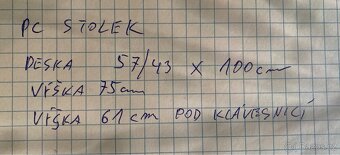 PC STOLEK
DESKA 57/43 X 100cm
VÝŠKA 75cm
VÝŠKA 61cm POD KLÁVESNICÍ